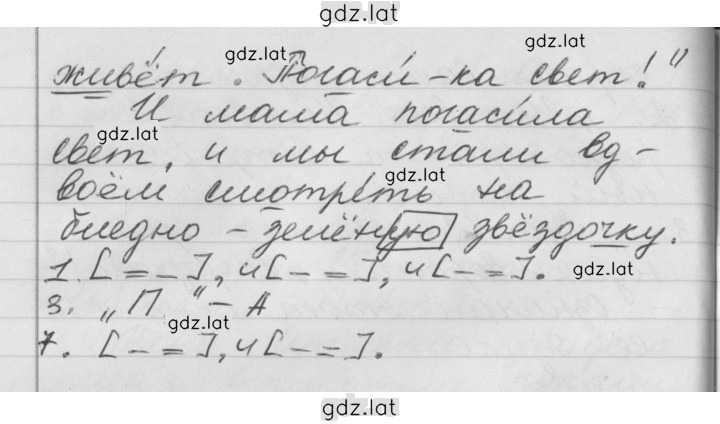 gdz.lat
живёт. Погаси-ка свет!"
gdz.lat
gdz.lat
И мама погасила
gdz.lat
свет, и мы стали вд-
gdz.lat
воём смотреть на
бледно-зелёную звёздочку.
1. [= –], и [– =], и [– =].
gdz.lat
3. „П“ – А
gdz.lat
7. [– =], и [– =].
gdz.lat